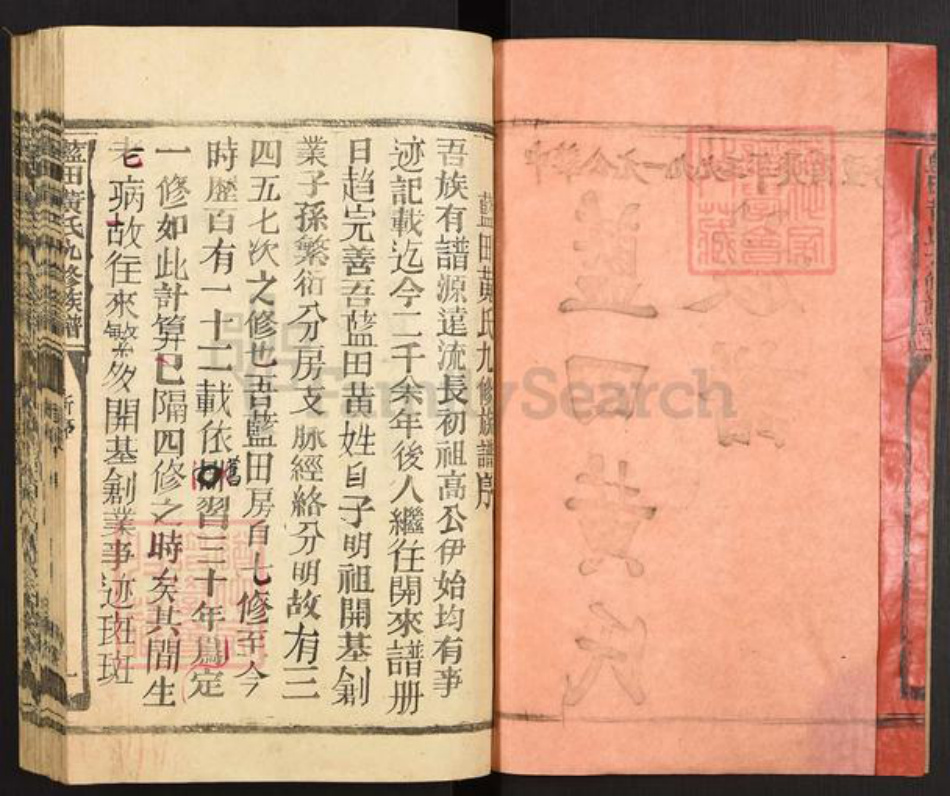 藍田黃氏九修族譜序
吾族有譜源遠流長初祖高公伊始均有事
迹記載迄今二千余年後人繼往開來譜册
日趋完善吾藍田黃姓自子明祖開基創
業子孫繁衍分房支脈經絡分明故有三
四五七次之修也吾藍田房自七修至今
時歷百有一十二載依舊習三十年爲定
一修如此計算已隔四修之時矣其間生
老病故往來繁多開基創業事迹斑斑
藍田黃氏九修族譜
新序
一
藍田黃氏
族譜
FamilySearch